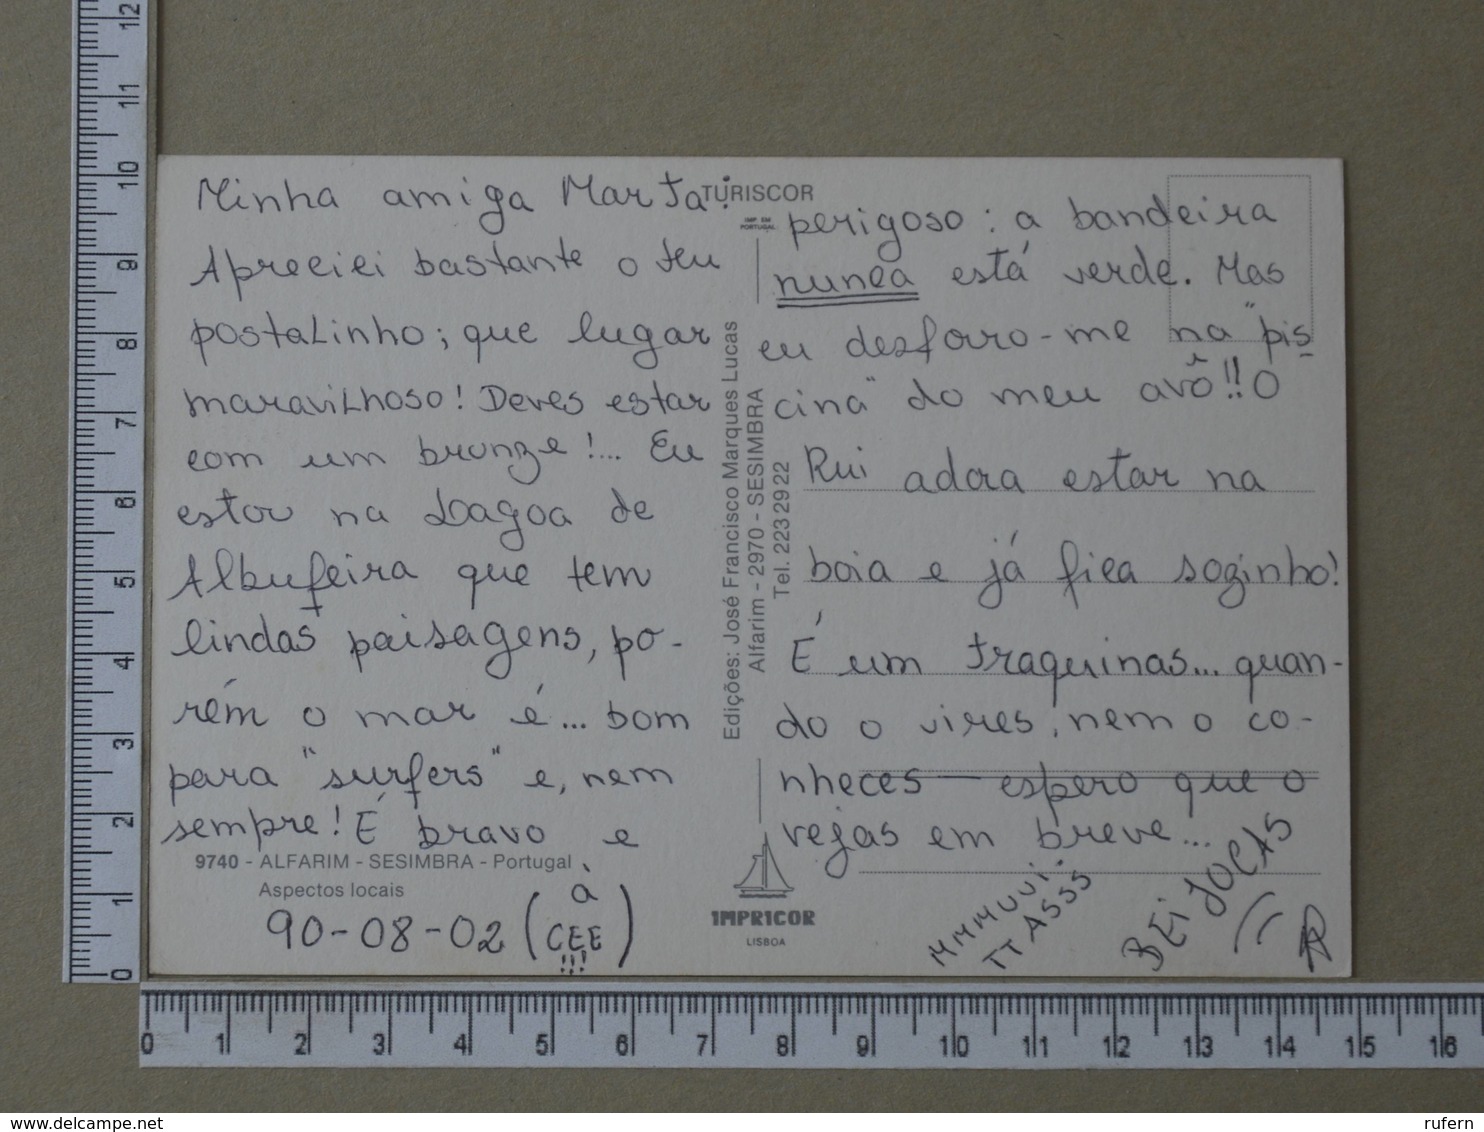 Minha amiga Marta:
Apreciei bastante o teu
postalinho; que lugar
maravilhoso! Deves estar
com um bronze!... Eu
estou na Lagoa de
Albufeira que tem
lindas paisagens, po-
rém o mar é... bom
para "surfers" e, nem
sempre! É bravo e
9740 - ALFARIM - SESIMBRA - Portugal
Aspectos locais
90-08-02 (à
CEE
!!!)
TURISCOR
IMP EM
PORTUGAL
Edições: José Francisco Marques Lucas
Alfarim - 2970 - SESIMBRA
Tel. 223 29 22
IMPRICOR
LISBOA
perigoso: a bandeira
nunca está verde. Mas
eu desforro-me na "pis
cina" do meu avô!! O
Rui adora estar na
boia e já fica sozinho!
É um traquinas... quan-
do o vires, nem o co-
nheces — espero que o
vejas em breve...
MMMUUI.
TTASSS
BEIJOCAS
12
11
10
9
8
7
6
5
4
3
2
1
0
0 1 2 3 4 5 6 7 8 9 10 11 12 13 14 15 16
www.delcampe.net
rufern